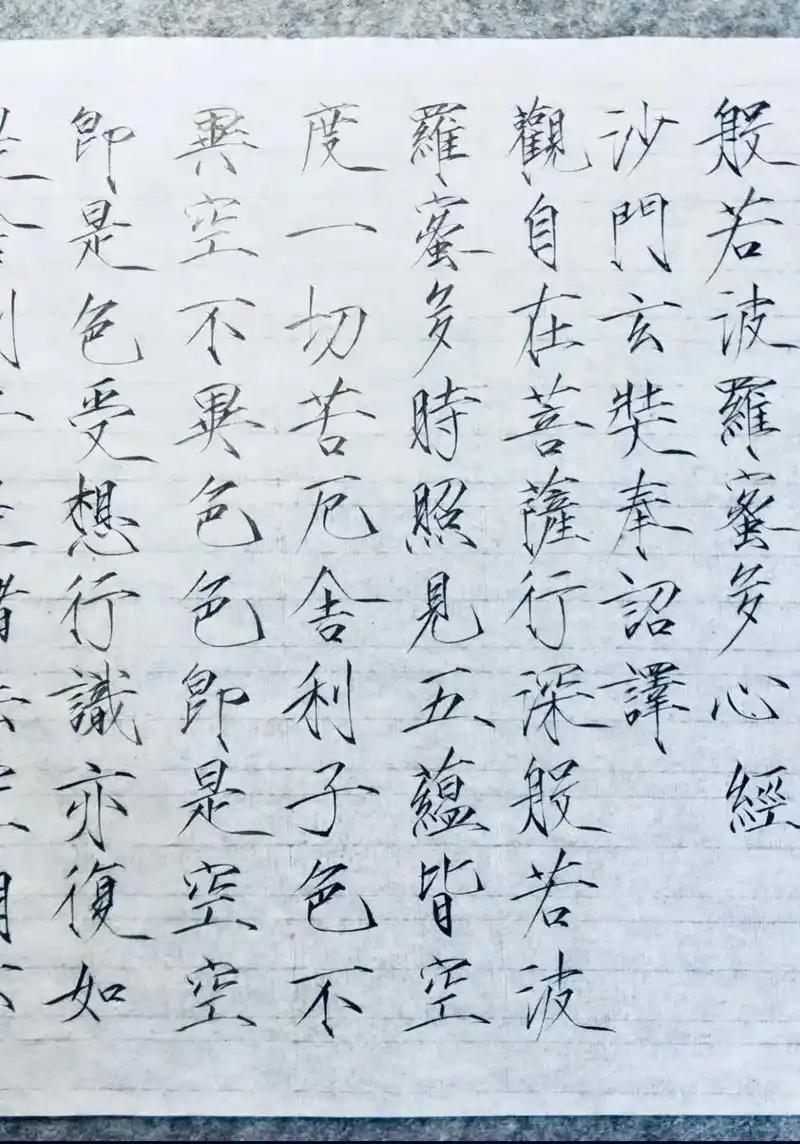 般若波羅蜜多心經
沙門玄奘奉詔譯
觀自在菩薩行深般若波
羅蜜多時照見五蘊皆空
度一切苦厄舍利子色不
異空不異色色即是空空
即是色受想行識亦復如